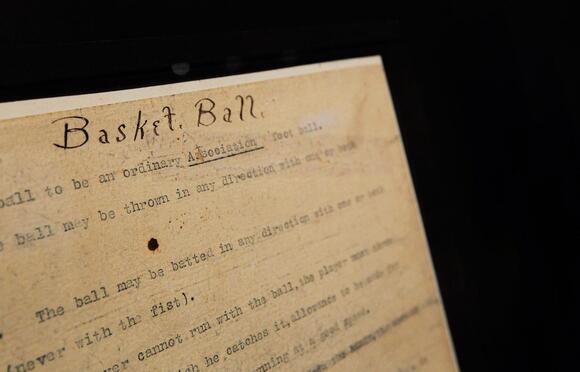 Basket. Ball.
ball to be an ordinary Association foot ball.
ball may be thrown in any direction with one or both
The ball may be batted in any direction with one or both
(never with the fist).
cannot run with the ball, the player must
he catches it, allowance to be made for
running at a good speed.